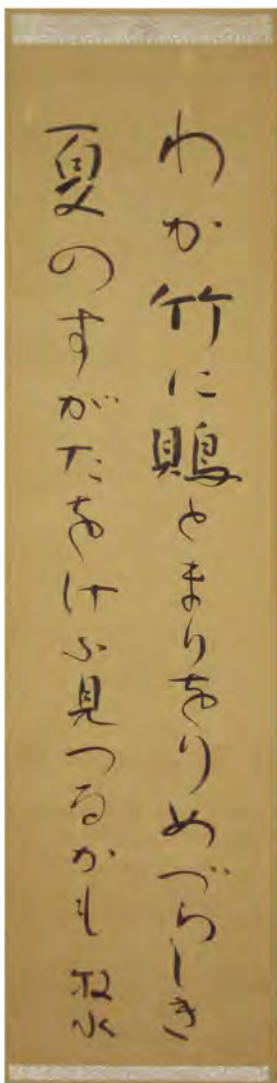 わか竹に鵙とまりをりめづらしき
夏のすがたをけふ見つるかも 牧水